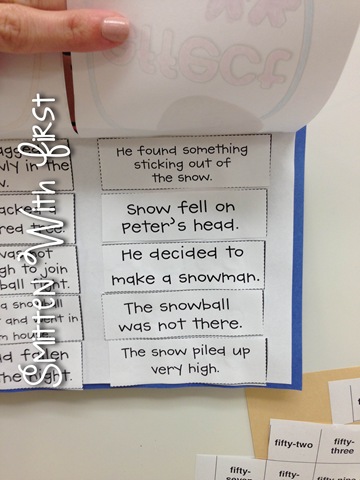 effect
Smitten With First
He found something
sticking out of
the snow.
Snow fell on
Peter's head.
He decided to
make a snowman.
The snowball
was not there.
The snow piled up
very high.
in the
red tree.
was not
to join
ball fight.
and went in
fallen
night.
fifty-two
fifty-
three
fifty-
seven
fifty-